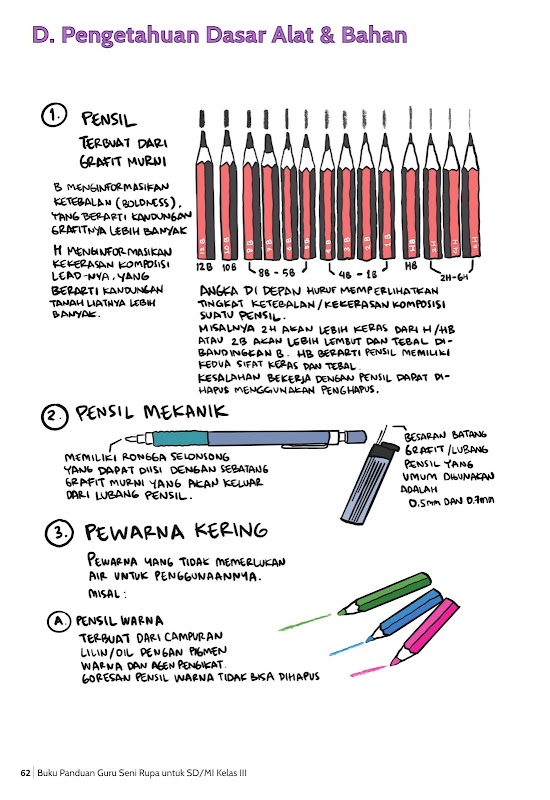 D. Pengetahuan Dasar Alat & Bahan
1. PENSIL
TERBUAT DARI
GRAFIT MURNI
B MENGINFORMASIKAN
KETEBALAN (BOLDNESS),
YANG BERARTI KANDUNGAN
GRAFITNYA LEBIH BANYAK
H MENGINFORMASIKAN
KEKERASAN KOMPOSISI
LEAD-NYA. YANG
BERARTI KANDUNGAN
TANAH LIATNYA LEBIH
BANYAK.
12B 10B 8B - 5B 4B - 1B HB 2H-6H
ANGKA DI DEPAN HURUF MEMPERLIHATKAN
TINGKAT KETEBALAN/KEKERASAN KOMPOSISI
SUATU PENSIL.
MISALNYA 2H AKAN LEBIH KERAS DARI H/HB
ATAU 2B AKAN LEBIH LEMBUT DAN TEBAL DI-
BANDINGKAN B. HB BERARTI PENSIL MEMILIKI
KEDUA SIFAT KERAS DAN TEBAL.
KESALAHAN BEKERJA DENGAN PENSIL DAPAT DI-
HAPUS MENGGUNAKAN PENGHAPUS.
2. PENSIL MEKANIK
MEMILIKI RONGGA SELONSONG
YANG DAPAT DIISI DENGAN SEBATANG
GRAFIT MURNI YANG AKAN KELUAR
DARI LUBANG PENSIL.
BESARAN BATANG
GRAFIT/LUBANG
PENSIL YANG
UMUM DIGUNAKAN
ADALAH
0.5mm DAN 0.7mm
3. PEWARNA KERING
PEWARNA YANG TIDAK MEMERLUKAN
AIR UNTUK PENGGUNAANNYA.
MISAL:
A. PENSIL WARNA
TERBUAT DARI CAMPURAN
LILIN/OIL DENGAN PIGMEN
WARNA DAN AGEN PENGIKAT.
GORESAN PENSIL WARNA TIDAK BISA DIHAPUS
62 | Buku Panduan Guru Seni Rupa untuk SD/MI Kelas III